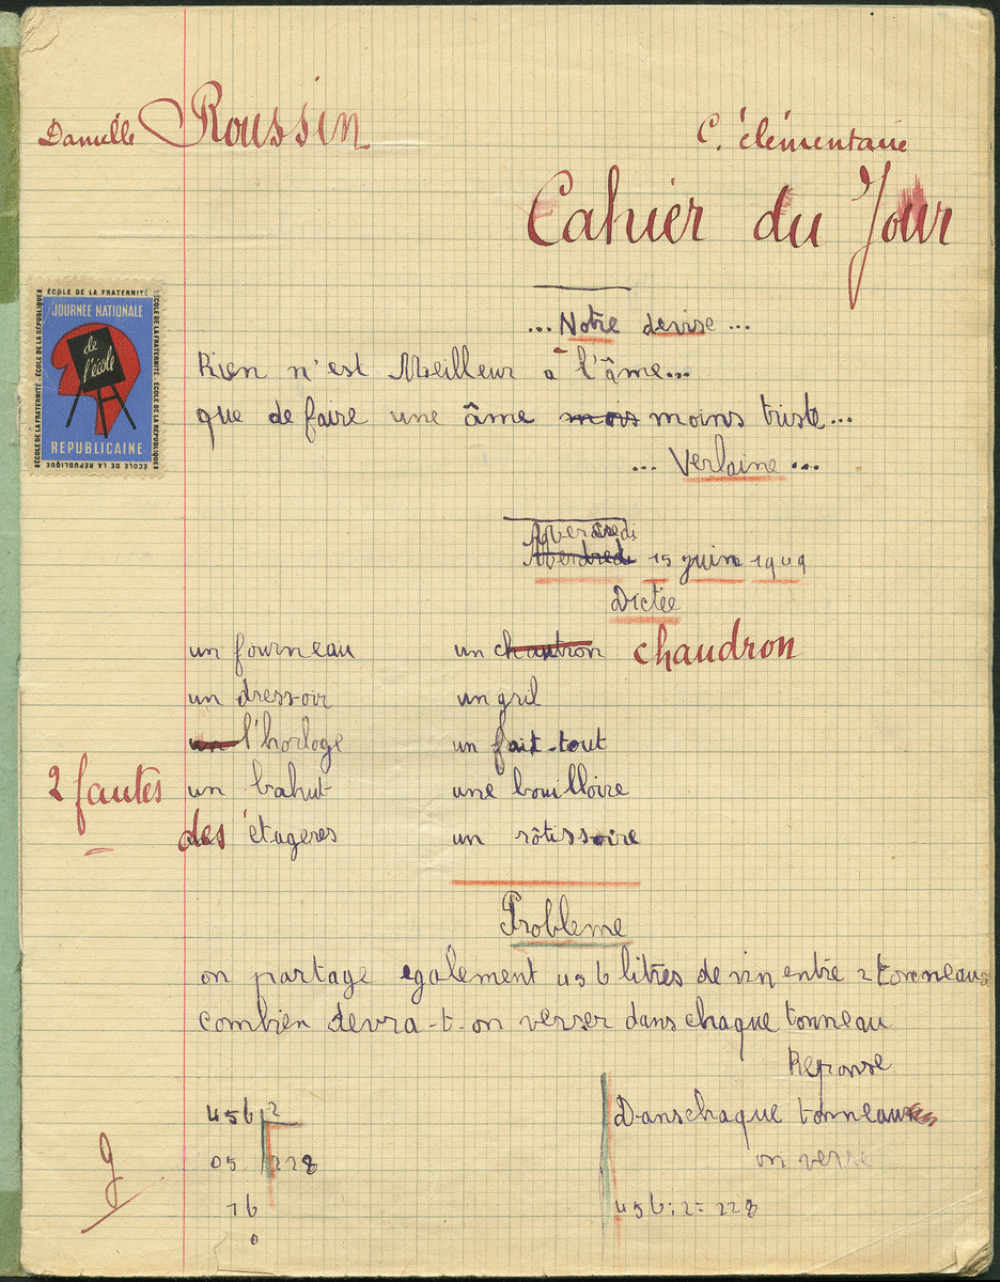 Danielle Roussin
C. élémentaire
Cahier du Jour
ÉCOLE DE LA FRATERNITÉ
ÉCOLE DE LA RÉPUBLIQUE
JOURNÉE NATIONALE
de
l'école
RÉPUBLICAINE
... Notre devise ...
Rien n'est Meilleur à l'âme...
que de faire une âme mois moins triste...
... Verlaine ...
Mercredi
15 juin 1949
Dictée
un fourneau
un chautron chaudron
un dressoir
un gril
un l'horloge
un fait-tout
2 fautes
un bahut
une bouilloire
des étageres
un rôtissoire
Probleme
on partage egalement 456 litres de vin entre 2 tonneaux
combien devra-t-on verser dans chaque tonneau
Reponse
456 2
Dans chaque tonneau
05 228
on verse
16
456:2= 228
0